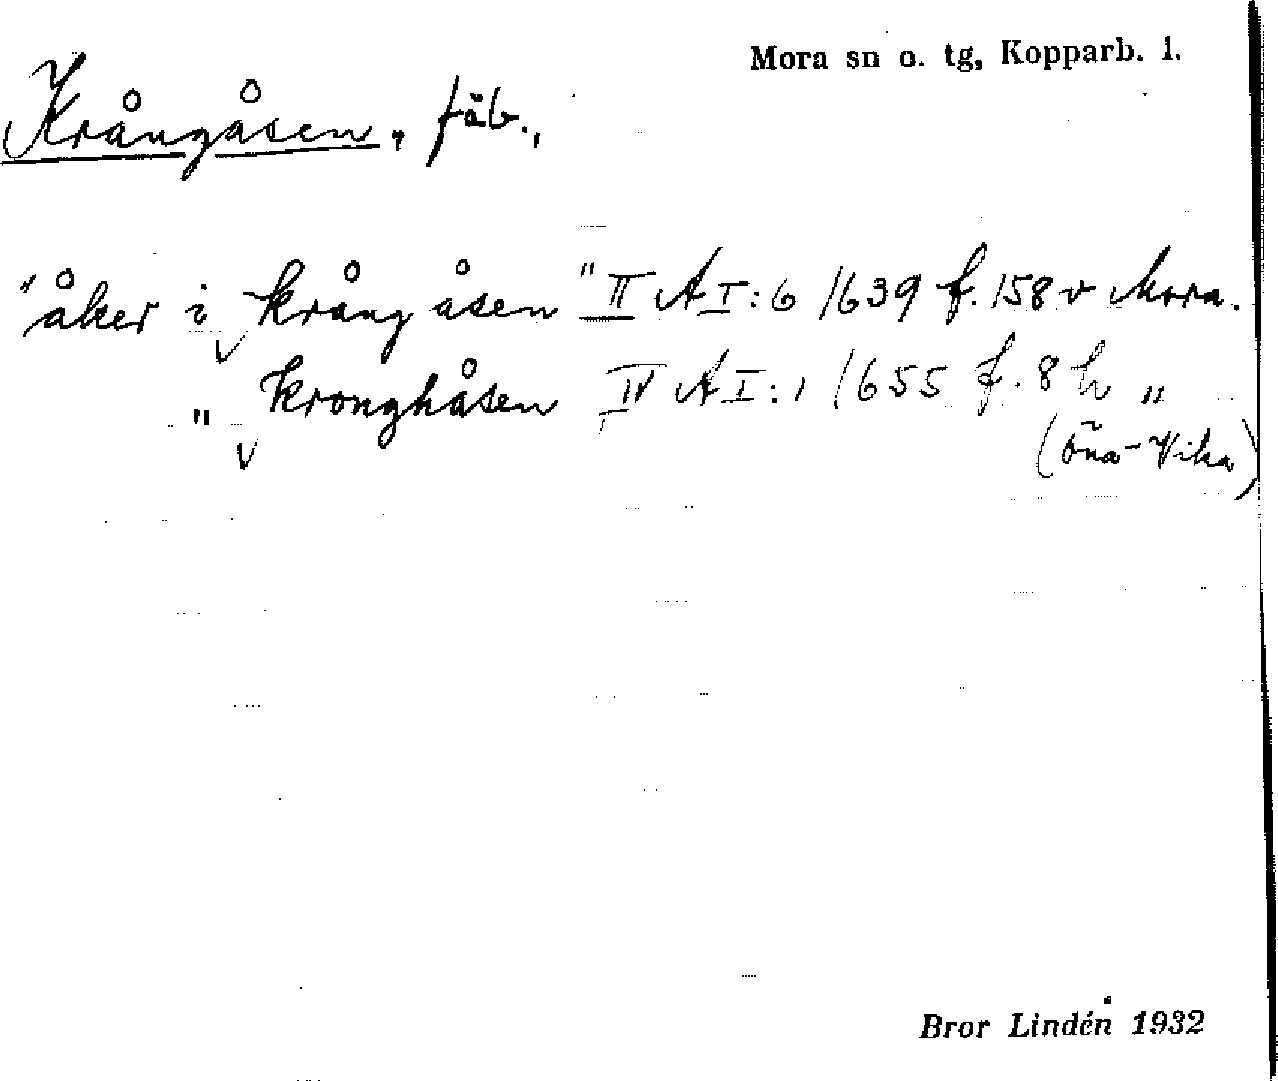 Mora sn o. tg, Kopparb. l.
Krångåsen, fäb.,
"åker i krång åsen" II A I: 6 1639 f. 158 v Mora.
" kronghåsen IV A I: 1 1655 f. 8 h "
(Öna-Vika)
Bror Lindén 1932